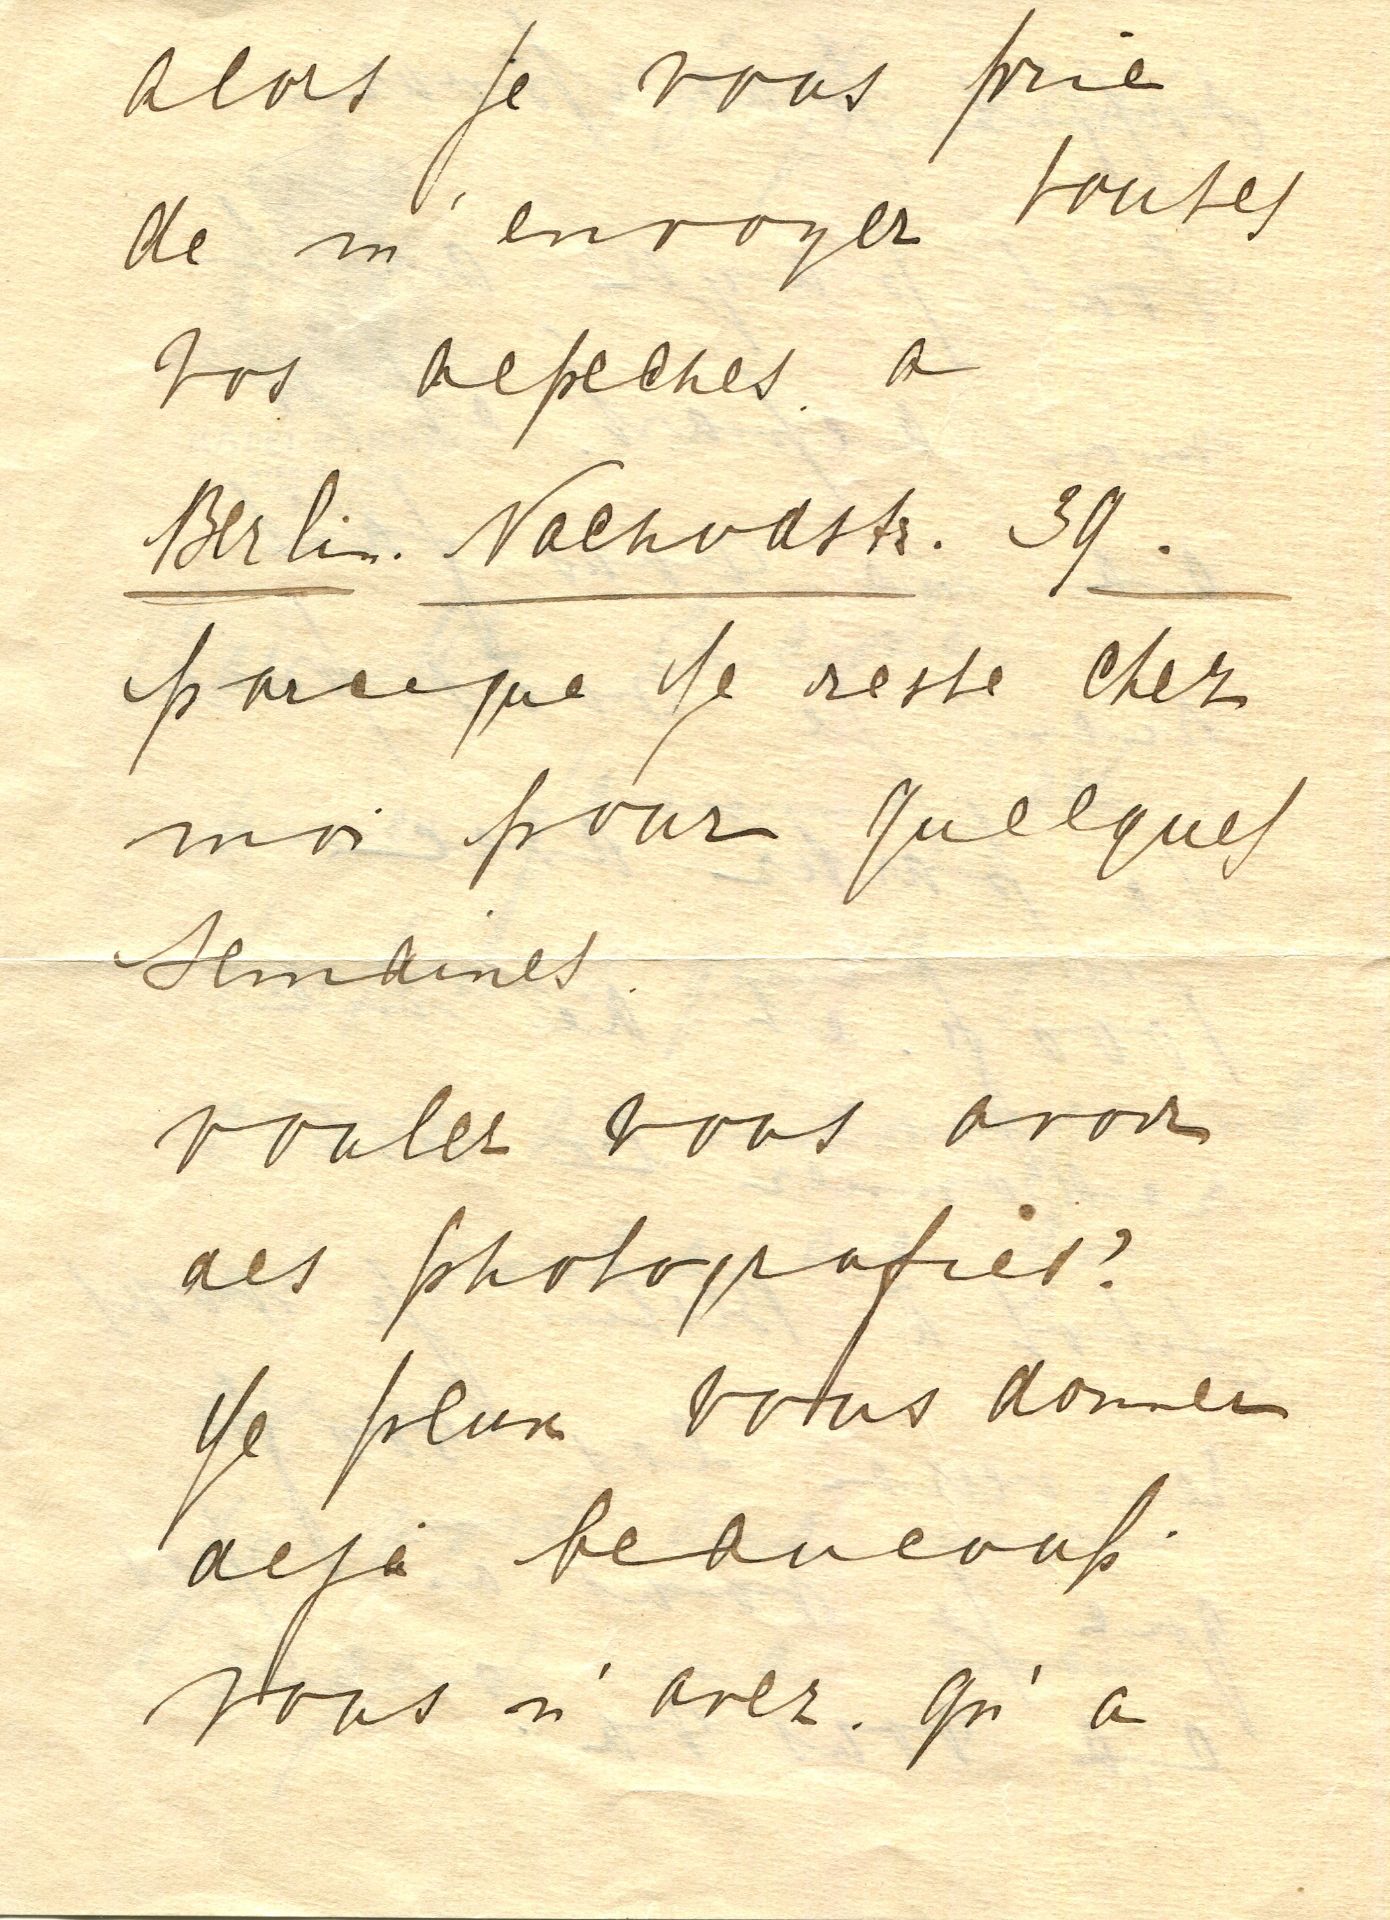 alors je vous prie
de m'envoyer toutes
vos depeches. a
Berlin. Nachodstr. 39.
parceque Je reste chez
moi pour quelques
semaines.
voulez vous avoir
des photografies?
Je peux vous donner
deja beaucoup.
vous n'avez. qu'a